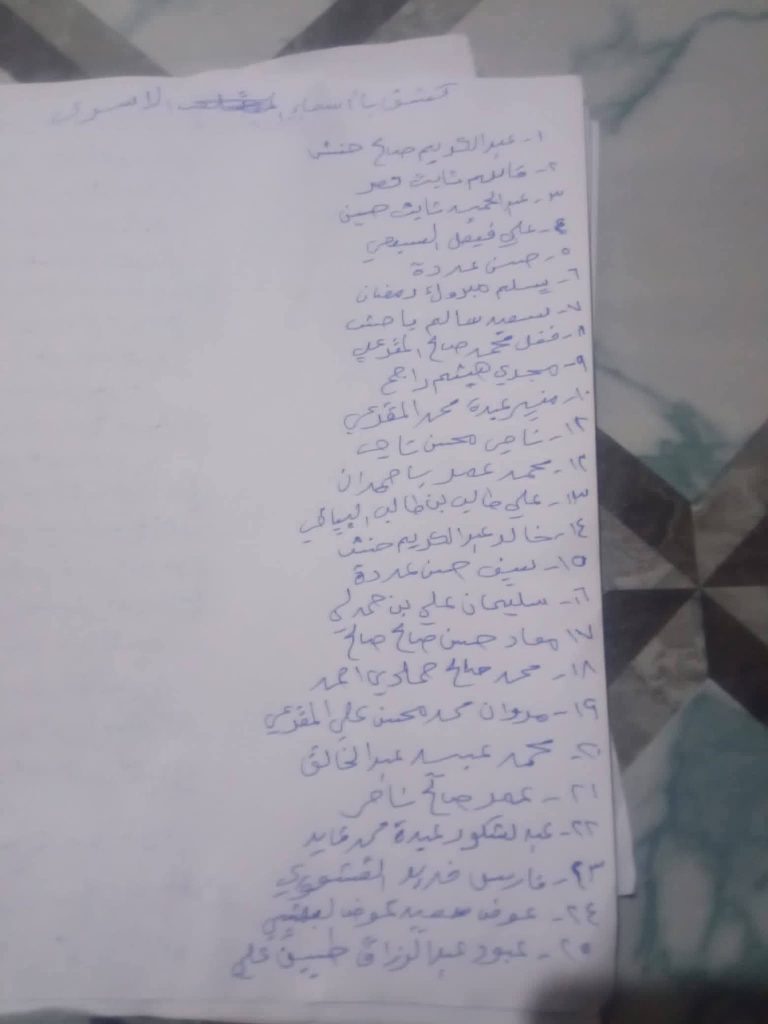 كشف بأسماء الاسرى
١- عبدالكريم صالح حنش
٢- قاسم ثابت
٣- عبدالحميد ثابت حسين
٤- علي فيصل السبعي
٥- حسن عردة
٦- يسلم مبروك رمضان
٧- سعيد سالم باحش
٨- فضل محمد صالح المقرعي
٩- مجدي هيثم راجح
١٠- منير عبدة محمد المقرعي
١٢- ناجي محسن ناجي
١٢- محمد عمر باحمدان
١٣- علي طالب بن طالب
١٤- خالد عبدالكريم حنش
١٥- سيف حسن عردة
١٦- سليمان علي بن حمدلي
١٧ معاد حسن صالح صالح
١٨- محمد صالح حمادي احمد
١٩- مروان محمد محسن علي المقرعي
٢٠- محمد عبيد عبدالخالق
٢١- عمر صالح ناصر
٢٢- عبدلشكور عبدة محمد عايد
٢٣- فارس فريد
٢٤- عوض سعيد عوض
٢٥- عبود عبدالرزاق علي